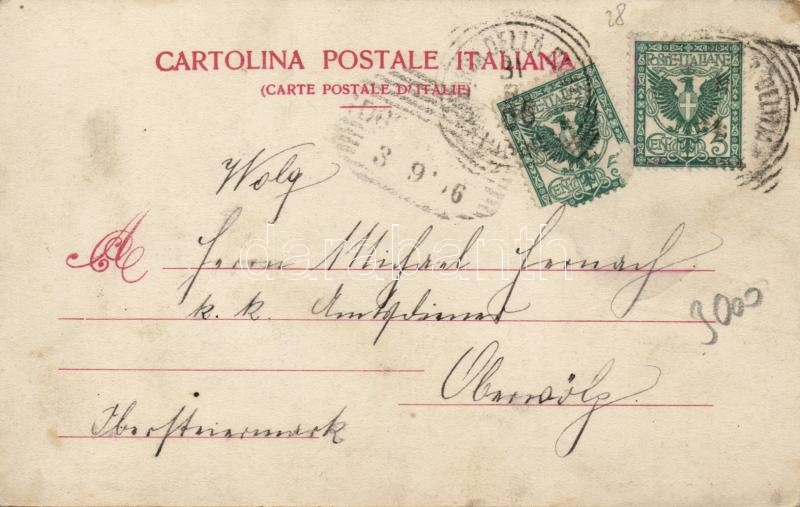 28
CARTOLINA POSTALE ITALIANA
(CARTE POSTALE D'ITALIE)
POSTE ITALIANE
CENT. 5
POSTE ITALIANE
CENT. 5
DELLA
3 9 06
Wolg
A
Herrn Michael Hernach
k. k. Amtsdiener
Oberwölz
Obersteiermark
3000
darabanth